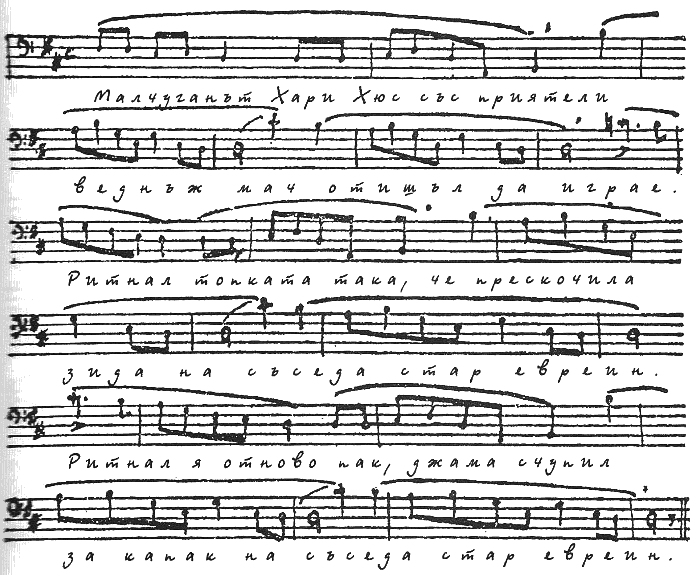 Малчуганът Хари Хюс със приятели
веднъж мач отишъл да играе.
Ритнал топката така, че прескочила
зида на съседа стар евреин.
Ритнал я отново пак, джама счупил
за капак на съседа стар евреин.